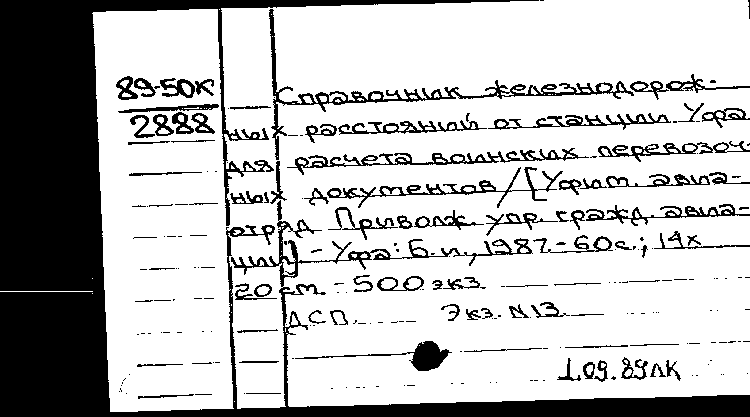 89-50К
2888
Справочник железнодорож-
ных расстояний от станции Уфа
для расчета воинских перевозоч-
ных документов / [Уфим. авиа-
отряд Приволж. упр. гражд. авиа-
ции] - Уфа: Б.и., 1987. - 60с.; 14х
20 см. - 500 экз.
ДСП. Экз. N13.
1.09.89ЛК